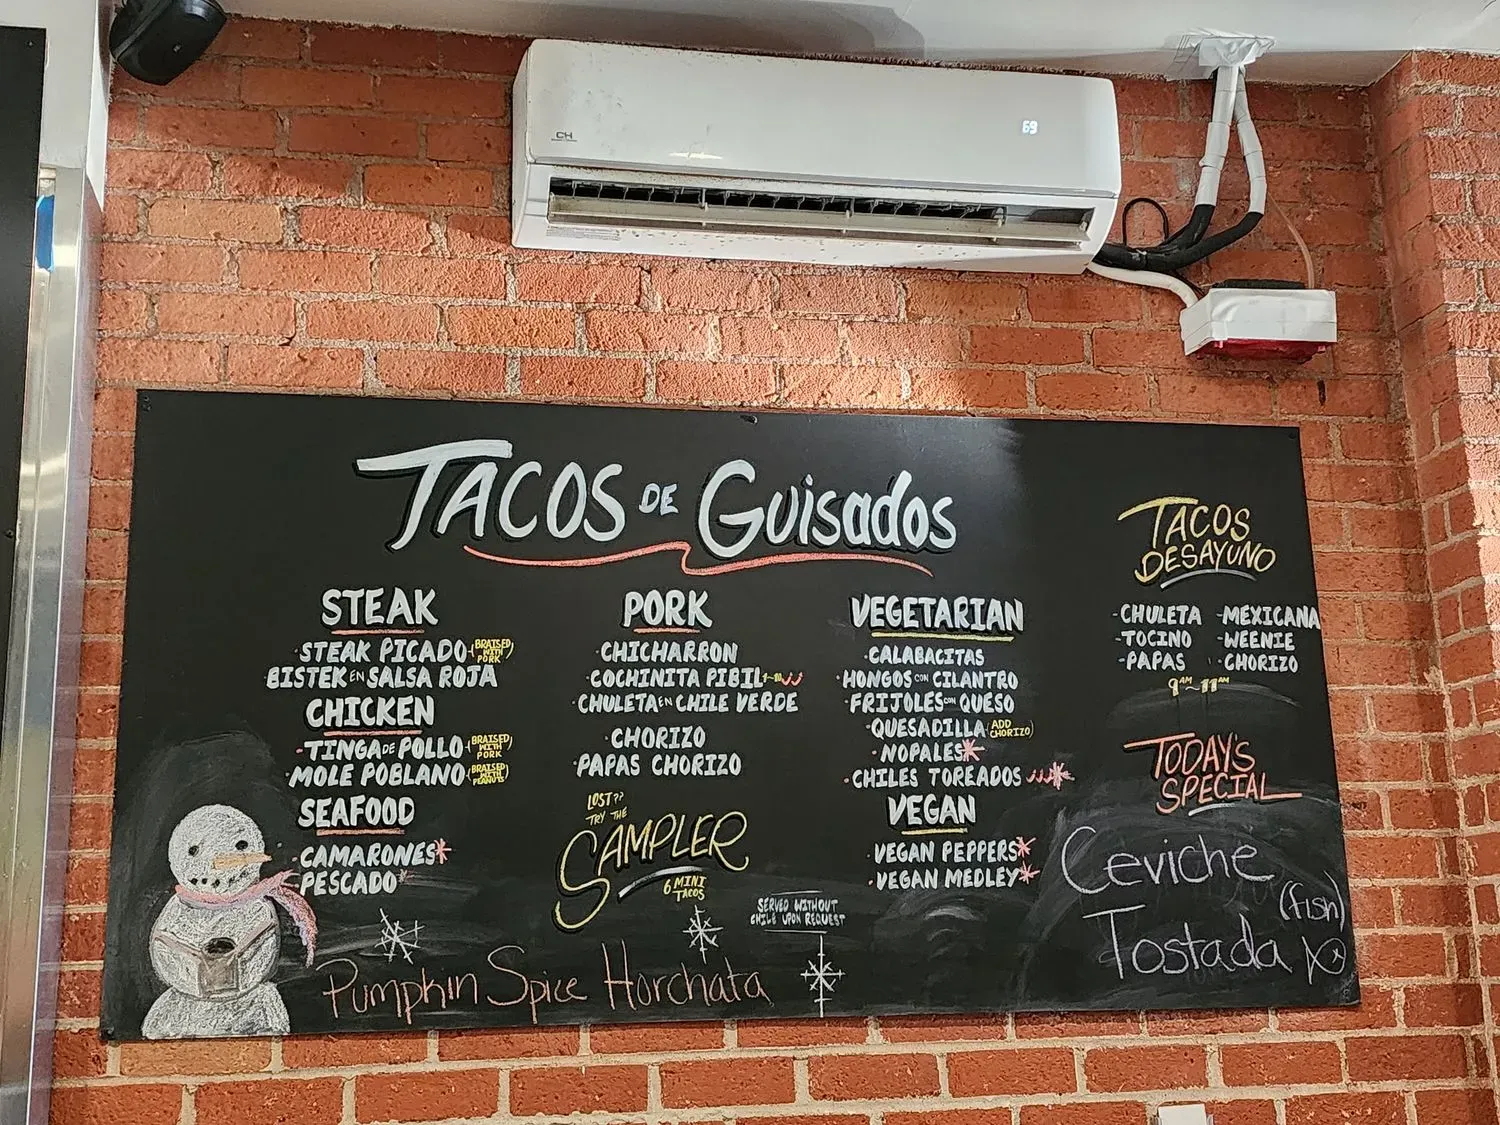 CH
69
TACOS DE GUISADOS
STEAK
-STEAK PICADO (BRAISED WITH PORK)
BISTEK EN SALSA ROJA
CHICKEN
-TINGA DE POLLO (BRAISED WITH PORK)
-MOLE POBLANO (BRAISED WITH PEANUTS)
SEAFOOD
-CAMARONES*
-PESCADO*
PORK
-CHICHARRON
-COCHINITA PIBIL
-CHULETA EN CHILE VERDE
CHORIZO
PAPAS CHORIZO
LOST??
TRY THE
SAMPLER
6 MINI
TACOS
VEGETARIAN
-CALABACITAS
-HONGOS CON CILANTRO
-FRIJOLES CON QUESO
-QUESADILLA (ADD CHORIZO)
-NOPALES*
-CHILES TOREADOS *
VEGAN
-VEGAN PEPPERS*
-VEGAN MEDLEY*
SERVED WITHOUT
CHILE UPON REQUEST
Pumpkin Spice Horchata
TACOS
DESAYUNO
-CHULETA -MEXICANA
-TOCINO -WEENIE
-PAPAS -CHORIZO
9AM-11AM
TODAY'S
SPECIAL
Ceviche
(fish)
Tostada